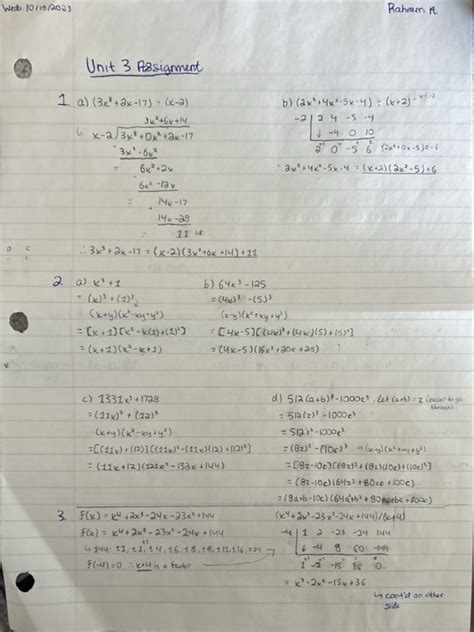 Wed. 10/18/2023
Raheem A
Unit 3 Assignment
1. a) (3x³+2x-17) ÷ (x-2)
3x²+6x+14
x-2 √3x³+0x²+2x-17
3x³-6x²
= 6x²+2x
6x²-12x
= 14x-17
14x-28
11
∴ 3x³+2x-17 = (x-2)(3x²+6x+14)+11
b) (2x³+4x²-5x-4) ÷ (x+2)
-2 | 2 4 -5 -4
↓ -4 0 10
2 0 -5 6 (2x²+0x-5)+6
∴ 2x³+4x²-5x-4 = (x+2)(2x²-5)+6
2. a) x³+1
= (x)³+(1)³
(x+y)(x²-xy+y²)
= [x+1][x²-x(1)+(1)²]
= (x+1)(x²-x+1)
b) 64x³-125
= (4x)³-(5)³
(x-y)(x²+xy+y²)
= [4x-5][(4x)²+(4x)(5)+(5)²]
= (4x-5)(16x²+20x+25)
c) 1331x³+1728
= (11x)³+(12)³
(x+y)(x²-xy+y²)
= [(11x)+(12)][(11x)²-(11x)(12)+(12)²]
= (11x+12)(121x²-132x+144)
d) 512(a+b)³-1000c³, let (a+b)=z (easier to go through)
= 512(z)³-1000c³
= 512z³-1000c³
= (8z)³-(10c)³ → (x-y)(x²+xy+y²)
= [8z-10c][(8z)²+(8z)(10c)+(10c)²]
= (8z-10c)(64z²+80zc+100c²)
3. f(x) = x⁴+2x³-24x-23x²+144
f(x) = x⁴+2x³-23x²-24x+144
↳ 144: ±1, ±2, ±3, ±4, ±6, ±8, ±9, ±12, ±16, ±24
f(-4)=0 ∴ x+4 is a factor
(x⁴+2x³-23x²-24x+144)/(x+4)
-4 | 1 2 -23 -24 144
↓ -4 8 60 -144
1 -2 -15 36 0
= x³-2x²-15x+36
↳ cont'd on other side